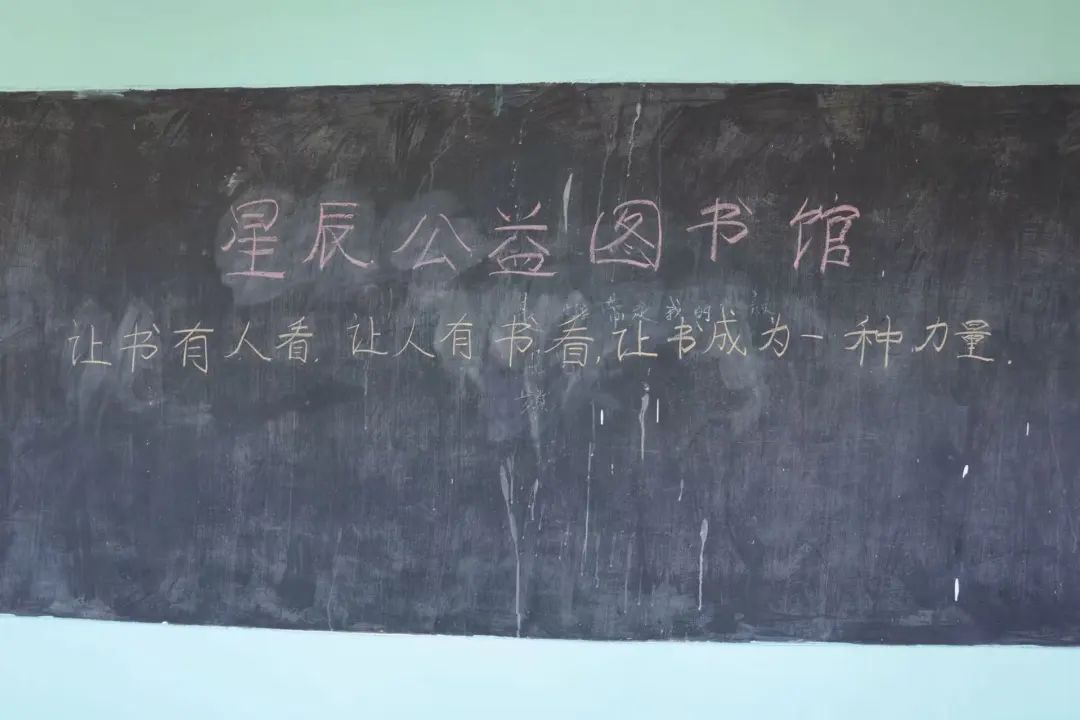 星辰公益图书馆
让书有人看,让人有书看,让书成为一种力量.